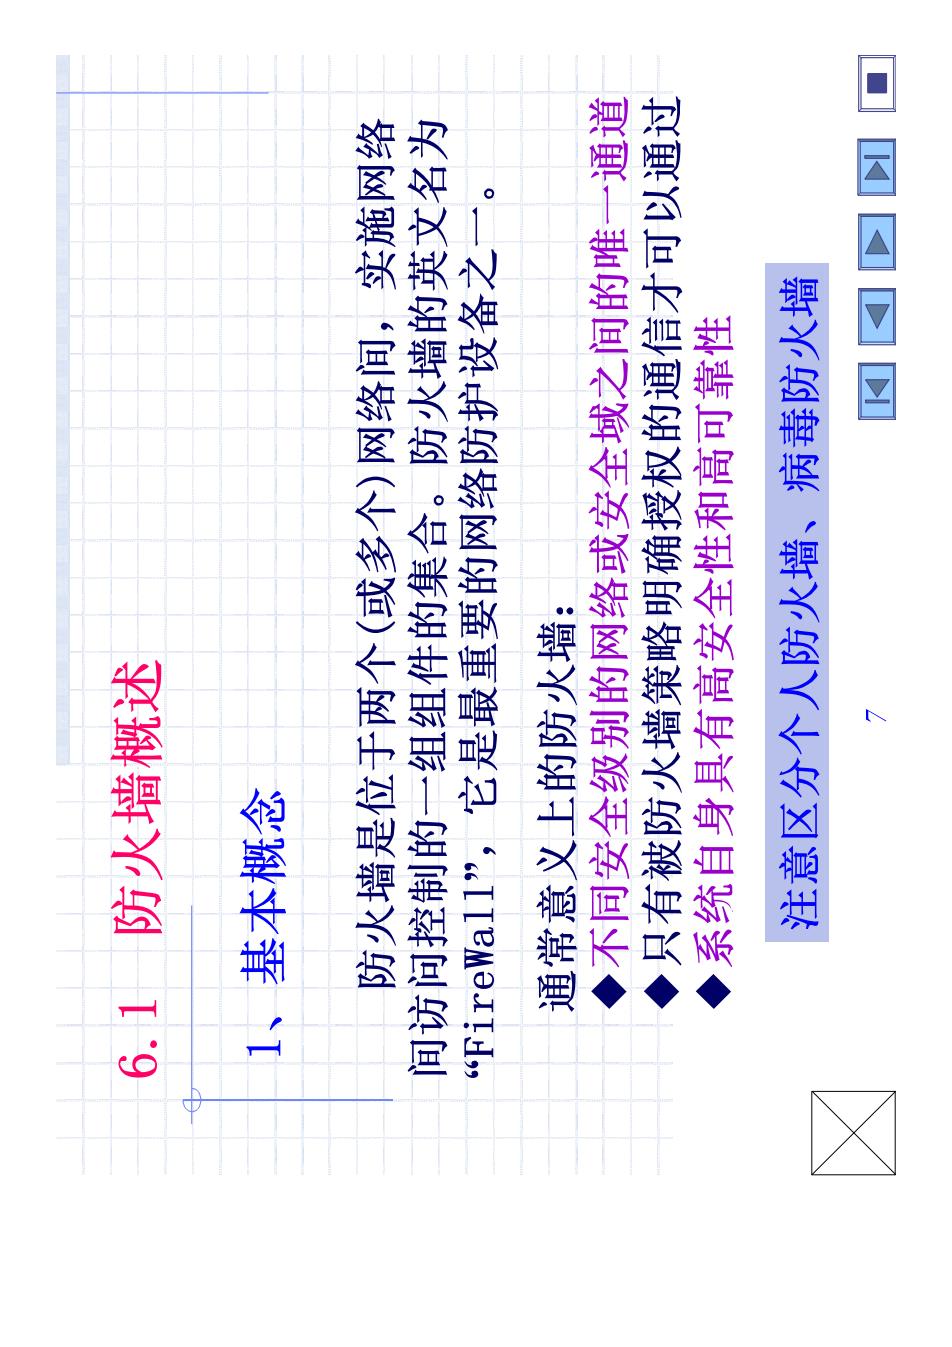 6.1 防火墙概述
1、基本概念
防火墙是位于两个(或多个)网络间，实施网络
间访问控制的一组组件的集合。防火墙的英文名为
“FireWall”，它是最重要的网络防护设备之一。
通常意义上的防火墙：
◆不同安全级别的网络或安全域之间的唯一通道
◆只有被防火墙策略明确授权的通信才可以通过
◆系统自身具有高安全性和高可靠性
注意区分个人防火墙、病毒防火墙
7